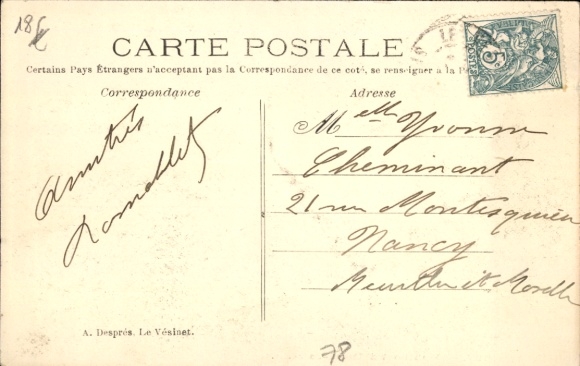 18€
CARTE POSTALE
Certains Pays Étrangers n'acceptant pas la Correspondance de ce coté, se renseigner a la
Correspondance
Adresse
Amitiés
Melle Yvonne
Cheminant
21 rue Montesquieu
Nancy
Meurthe et Moselle
5
A. Desprès. Le Vésinet.
78